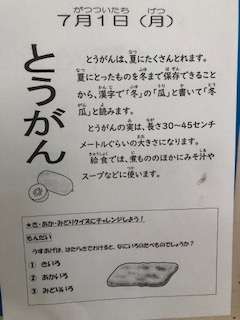 がつついたち げつ
7月1日(月)
とうがん
とうがんは、夏にたくさんとれます。
夏にとったものを冬まで保存できること
から、漢字で「冬」の「瓜」と書いて「冬
瓜」と読みます。
とうがんの実は、長さ30～45センチ
メートルぐらいの大きさになります。
給食では、煮もののほかにみそ汁や
スープなどに使います。
★き・あか・みどりクイズにチャレンジしよう!
もんだい
うすあげは、はたらきでわけると、なにいろのたべものでしょうか?
① きいろ
② あかいろ
③ みどりいろ